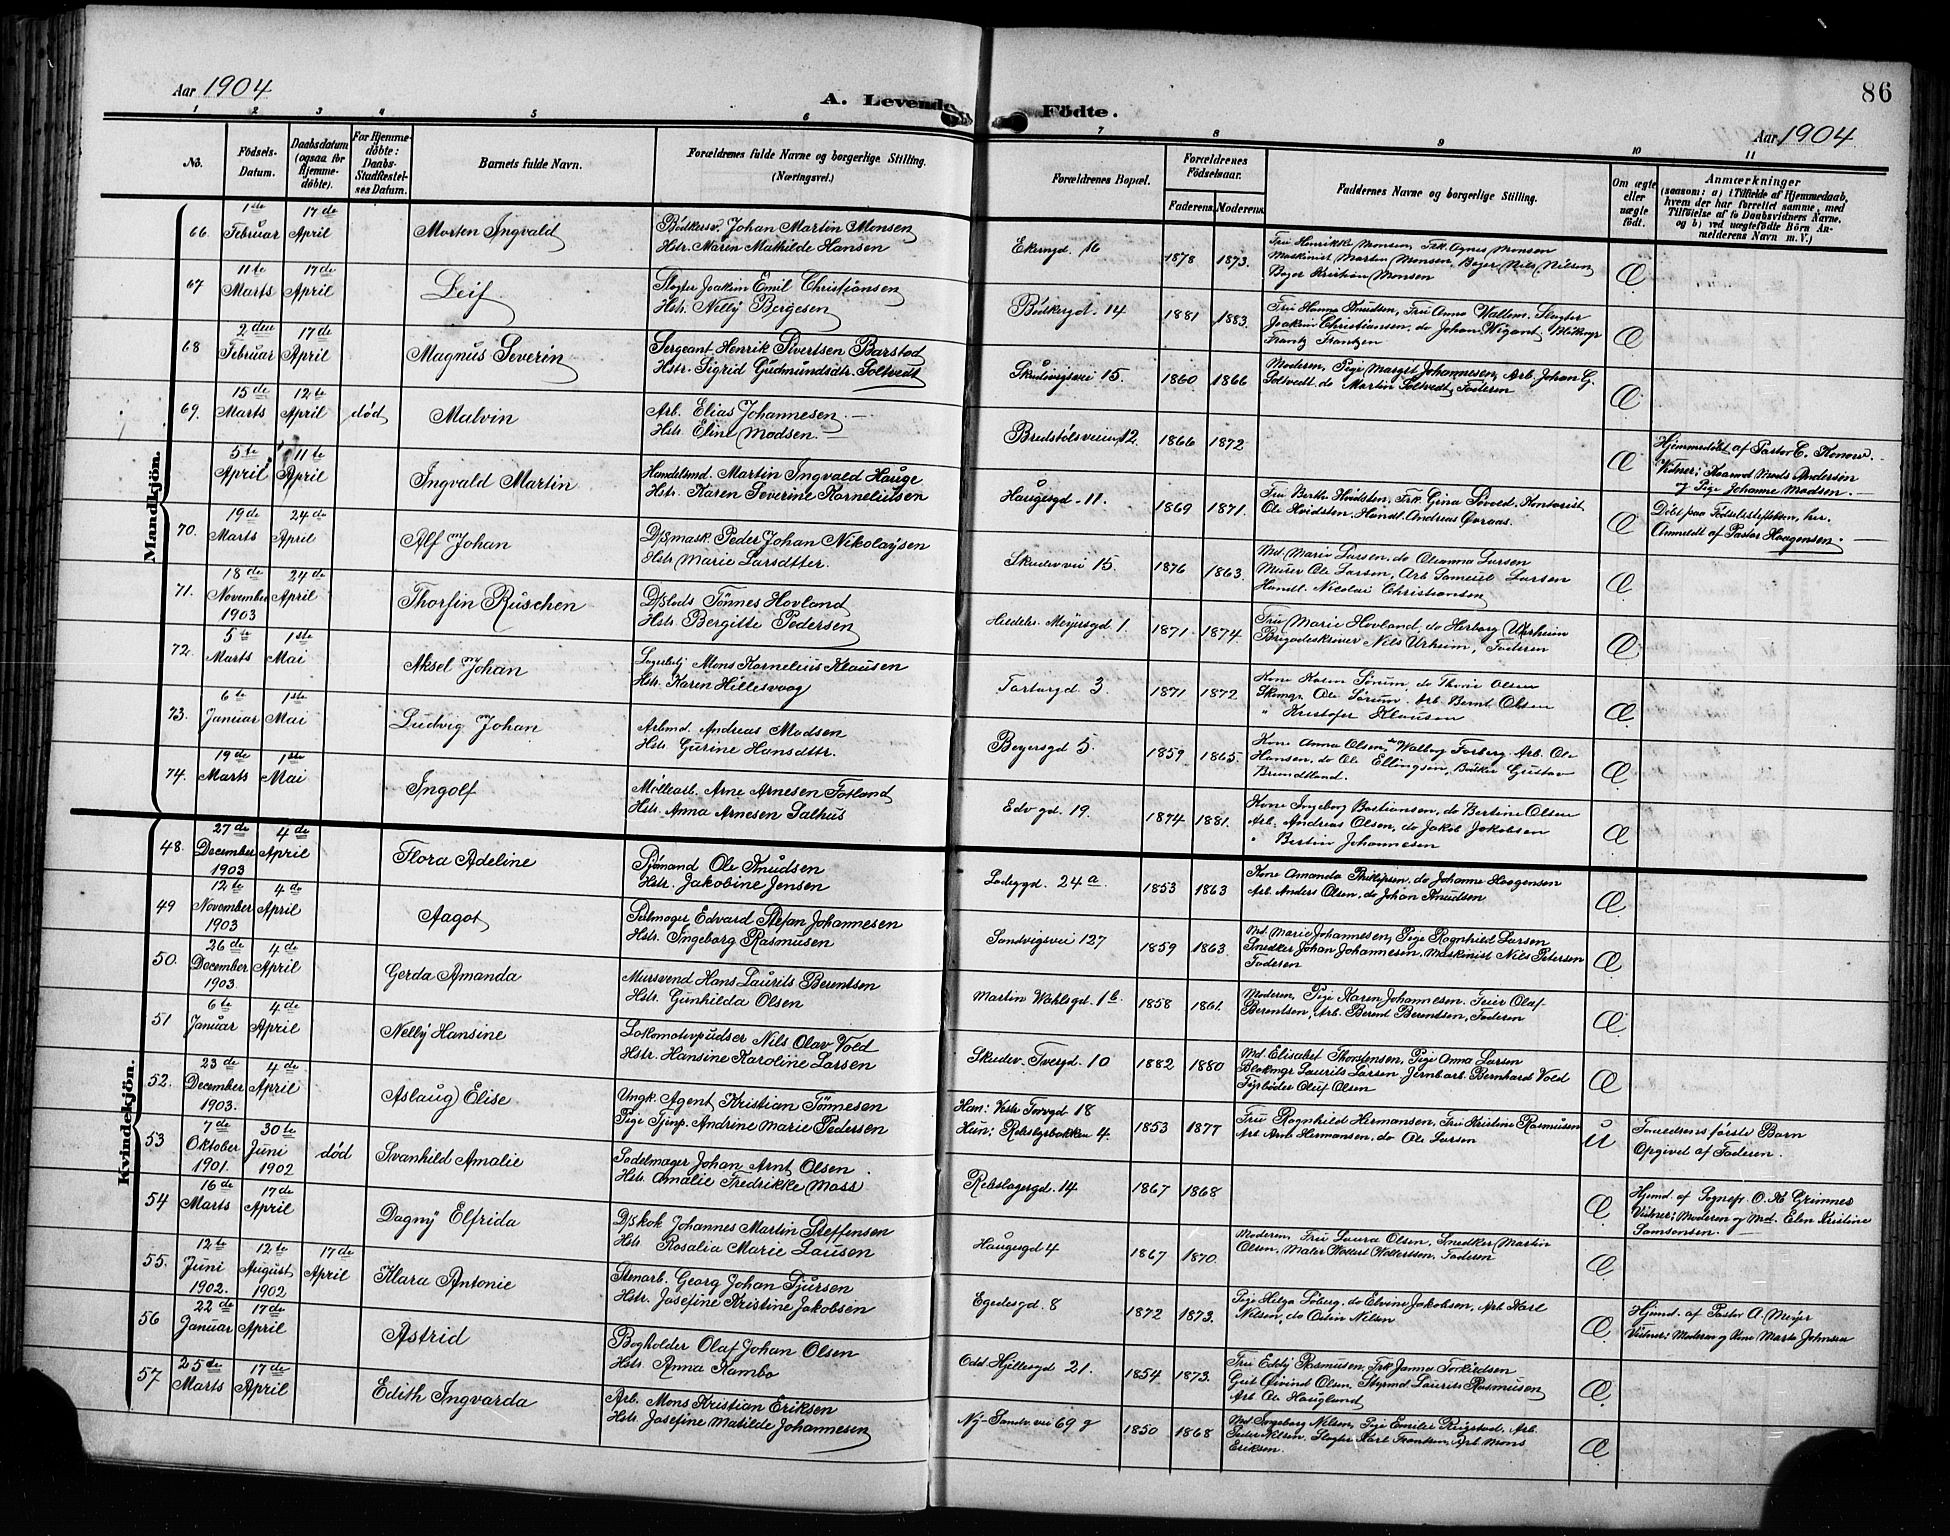 Aar 1904
A. Levende Födte.
86
Aar 1904
1 2 3 4 5 6 7 8 9 10 11
No. Födsels-Datum. Daabsdatum (ogsaa for Hjemmedöbte). For Hjemmedöbte: Daabs-Stadfæstelses Datum. Barnets fulde Navn. Forældrenes fulde Navne og borgerlige Stilling. (Næringsvei.) Forældrenes Bopæl. Forældrenes Födselsaar. Faderens. Moderens. Faddernes Navne og borgerlige Stilling. Om ægte eller uægte födt. Anmærkninger (saasom: a) i Tilfælde af Hjemmedaab, hvem der har forrettet samme, med Tilföielse af to Daabsvidners Navne, og b) ved uægtefödte Börn Anmelderens Navn m. V.)
Mandkjön.
66. 1ste Februar 17de April Morten Ingvald
Bödkersv. Johan Martin Monsen
Hstr. Maren Mathilde Hansen
Ekregd. 16 1878 1873.
Fru Henrikke Monsen, Frk. Agnes Monsen
Maskinist Martin Monsen, Bager Nils Nilsen
Bager Kristian Monsen
Æ
67 11te Marts 17de April Leif
Slagter Joakim Emil Christiansen
Hstr. Nelly Bergesen
Bödkergd. 14 1881 1883.
Fru Hanna Knudsen, Fru Anna Wallem, Slagter
Joakim Christiansen, do Johan Wigant, Blikmgr
Frantz Frantzen
Æ
68 2den Februar 17de April Magnus Severin
Sergeant Henrik Sivertsen Barstad
Hstr. Sigrid Gudmundsdtr. Soltvedt
Skudevigsvei 15. 1860 1866
Moderen, Pige Margit Johannesen, Arb. Johan G.
Soltvedt, do Martin Soltvedt, Faderen
Æ
69. 15de Marts 12te April död Malvin
Arb. Elias Johannesen
Hstr. Eline Madsen.
Bredstølsveien 12. 1866 1872
Æ
Hjemmedöbt af Pastor C. Konow.
Vidner: Kaarmd Mads Andersen
og Pige Johanne Madsen.
5te April 11te April Ingvald Martin
Handelsmd. Martin Ingvald Hauge
Hstr. Karen Severine Korneliusen
Haugesgd. 11. 1869 1871.
Fru Berthe Hvidsten, Frk. Gina Søvold, Kontorist
Ole Hvidsten, Handl. Andreas Øvraas.
Æ
Döbt paa Födselsstiftelsen, her.
Anmeldt af Pastor Haagensen.
70. 19de Marts 24de April Alf Johan
D/Smask. Peder Johan Nikolaysen
Hstr. Marie Larsdtter.
Skudevvei 15. 1876 1863.
Md. Marie Larsen, do Oleanna Larsen
Murer Ole Larsen, Arb. Samuel Larsen
Handl. Nicolai Christiansen
Æ
71. 18de November 1903 24de April Thorfin Ruschen
D/Slods Tönnes Hovland
Hstr. Bergitte Pedersen
Michels. Meyersgd 1. 1871 1874.
Fru Marie Hovland, do Herborg Urheim
Brigadeskriver Nils Urheim, Faderen
Æ
72. 5te Marts 1ste Mai Aksel Johan
Lagerbetj. Mons Kornelius Klausen
Hstr. Karen Hillesvaag
Tartargd. 3 1871 1872.
Kone Karen Sørum, do Thrine Olsen
Skomgr. Ole Sørum, Arb. Bernt Olsen
" Kristofer Klausen
Æ
73. 6te Januar 1ste Mai Ludvig Johan
Arbmd. Andreas Madsen
Hstr. Gurine Hansdttr.
Beyersgd 5. 1859 1865.
Kone Anna Olsen, do Walbog Farberg, Arb. Ole
Hansen, do Ole Ellingsen, Bödker Gustav
Brundtland.
Æ
74. 19de Marts 1ste Mai Ingolf
Möllearb. Arne Arnesen Fotland
Hstr. Anna Arnesen Salhus
Edvgd. 19 1874 1881.
Kone Ingeborg Bastiansen, do Bertine Olsen
Arb. Andreas Olsen, do Jakob Jakobsen
" Bertin Johannesen
Æ
Kvindekjön.
48. 27de December 1903 4de April Flora Adeline
Sjömand Ole Knudsen
Hstr. Jakobine Jensen
Ladegd. 24a 1853 1863
Kone Amanda Phillipsen, do Johanne Haagensen
Arb. Anders Olsen, do Johan Knudsen
Æ
49 12te November 1903 4de April Aagot
Seilmager Edvard Stefan Johannesen
Hstr. Ingeborg Rasmusen
Sandvigsvei 127 1859 1863
Md. Marie Johannesen, Pige Ragnhild Larsen
Snedker Johan Johannesen, Maskinist Nils Petersen
Faderen
Æ
50. 26de December 1903. 4de April Gerda Amanda
Mursvend Hans Laurits Berentsen
Hstr. Gunhilda Olsen
Martin Wahlsgd. 1b 1858 1861.
Moderen, Pige Karen Johannesen, Feier Olaf
Berentsen, Arb. Berent Berentsen, Faderen
Æ
51 6te Januar 4de April Nelly Hansine
Lokomotivpudser Nils Olav Vold
Hstr. Hansine Karoline Larsen
Skudev. Tvergd. 10 1882 1880
Md. Elisabet Thorstensen, Pige Anna Larsen
Blokmgr Laurits Larsen, Jernbarb. Bernhard Vold
Oluf Olsen
Æ
52. 23de December 1903. 4de April Aslaug Elise
Ungk. Agent Kristian Tönnesen
Pige Tjnp. Andrine Marie Pedersen
Han: Vestr. Torvgd 18
Hun: Rebslagerbakken 4. 1853 1877
Fru Ragnhild Hermansen, Fru Kristine Rasmusen
Arb. Arnt Hermansen, do Ole Larsen
U
Faderens første Barn
Opgivet af Faderen.
53 7de Oktober 1901. 30te Juni 1902 död Svanhild Amalie
Sadelmager Johan Arnt Olsen.
Hstr. Amalie Fredrikke Moss
Rebslagergd. 14 1867 1868
Æ
Hjmd. af Sognepr. O. K. Grimnes
Vidner: Moderen og Md. Elen Kristine
Samsonsen.
54 16de Marts 17de April Dagny Elfrida
D/Skok Johannes Martin Steffensen
Hstr. Rosalia Marie Lausen
Haugegd 4 1867 1870.
Moderen, Fru Laura Olsen, Snedker Martin
Olsen, Maler Wollert Wollertsen, Faderen
Æ
55. 12te Juni 1902. 12te August 1902 17de April Klara Antonie
Stenarb. Georg Johan Sjursen
Hstr. Josefine Kristine Jakobsen
Egedesgd. 8 1872 1873.
Pige Helga Söberg, do Elvine Jakobsen, Arb. Karl
Nilsen, do Ostin Nilsen
Æ
Hjmd. af Pastor A. Meyer
Vidner: Moderen og Kone Marta Johnsen
56 22de Januar 17de April Astrid
Bogholder Olaf Johan Olsen
Hstr. Anna Kambo
Odd Hjellesgd 21. 1854 1873.
Fru Eddy Rasmusen, Frk. Janna Torkildsen
Gut Øivind Olsen, Styrmd. Laurits Rasmusen
Arb. Ole Haugland
Æ
57 25de Marts 17de April Edith Ingvarda
Arb. Mons Kristian Eriksen
Hstr. Josefine Matilde Johannesen
Ny Sandv. vei 69 g 1850 1868
Md. Ingeborg Nilsen, Pige Emilie Rugstad, Arb.
Peder Nilsen, Slagter Karl Frantsen, Arb. Mons
Eriksen.
Æ